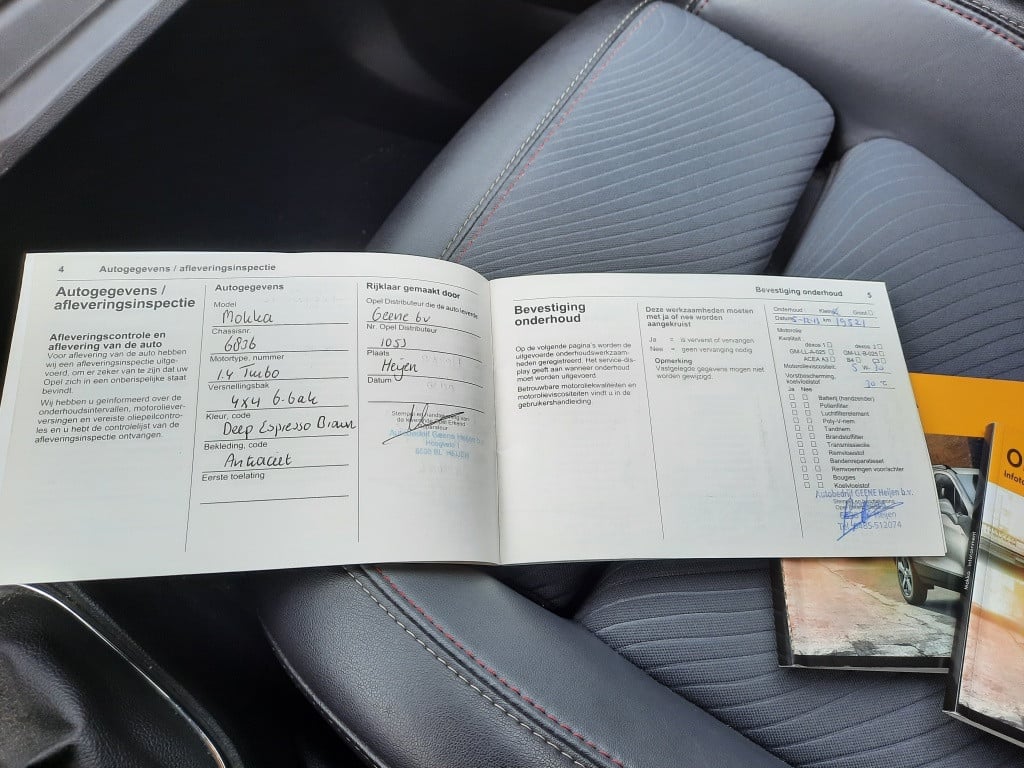 4 Autogegevens / afleveringsinspectie
Autogegevens /
afleveringsinspectie
Afleveringscontrole en
aflevering van de auto
Voor aflevering van de auto hebben
wij een afleveringsinspectie uitge-
voerd, om er zeker van te zijn dat uw
Opel zich in een onberispelijke staat
bevindt.
Wij hebben u geïnformeerd over de
onderhoudsintervallen, motoroliever-
versingen en vereiste oliepeilcontro-
les en u hebt de controlelijst van de
afleveringsinspectie ontvangen.
Autogegevens
Model
Mokka
Chassisnr.
6836
Motortype, nummer
1.4 Turbo
Versnellingsbak
4x4 6-bak
Kleur, code
Deep Espresso Braun
Bekleding, code
Antraciet
Eerste toelating
Rijklaar gemaakt door
Opel Distributeur die de auto leverde
Geene bv
Nr. Opel Distributeur
1053
Plaats
Heijen
Datum
Autobedrijf Geene Heijen b.v.
Hoogveld 1
HEIJEN
Bevestiging onderhoud 5
Bevestiging
onderhoud
Op de volgende pagina's worden de
uitgevoerde onderhoudswerkzaam-
heden geregistreerd. Het service-dis-
play geeft aan wanneer onderhoud
moet worden uitgevoerd.
Betrouwbare motoroliekwaliteiten en
motorolieviscositeiten vindt u in de
gebruikershandleiding.
Deze werkzaamheden moeten
met ja of nee worden
aangekruist
Ja = is ververst of vervangen
Nee = geen vervanging nodig
Opmerking
Vastgelegde gegevens mogen niet
worden gewijzigd.
Onderhoud Klein Groot
Datum km 19521
Motorolie
Kwaliteit
dexos 1 dexos 2
GM-LL-A-025 GM-LL-B-025
ACEA A3
Motorolieviscositeit: 5 w 30
Vorstbescherming,
koelvloeistof
30 °C
Ja Nee
Batterij (handzender)
Pollenfilter
Luchtfilterelement
Poly-V-riem
Tandriem
Brandstoffilter
Transmissieolie
Remvloeistof
Bandenreparatieset
Remvoeringen voor/achter
Bougies
Koelvloeistof
Autobedrijf GEENE Heijen b.v.
Heijen
Tel. 0485-512074